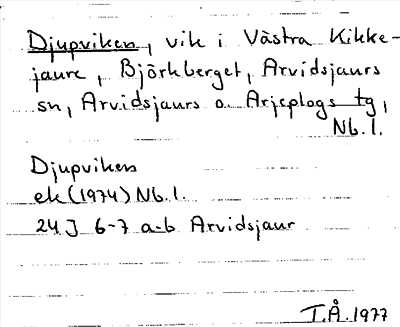 Djupviken, vik i Västra Kikke-
jaure, Björkberget, Arvidsjaurs
sn, Arvidsjaurs o. Arjeplogs tg,
Nb. l.
Djupviken
ek (1974) Nb. l.
24J 6-7 a-b Arvidsjaur
T.Å. 1977